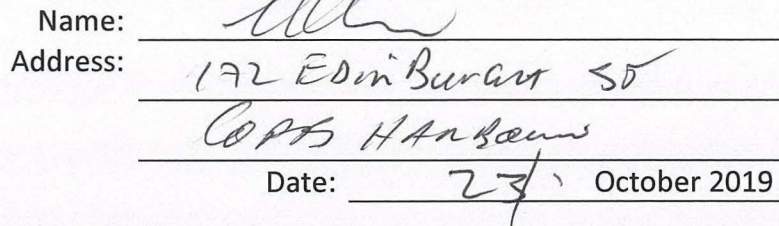 Name:
Address: 172 Edinburgh St
Coffs Harbour
Date: 23/ October 2019